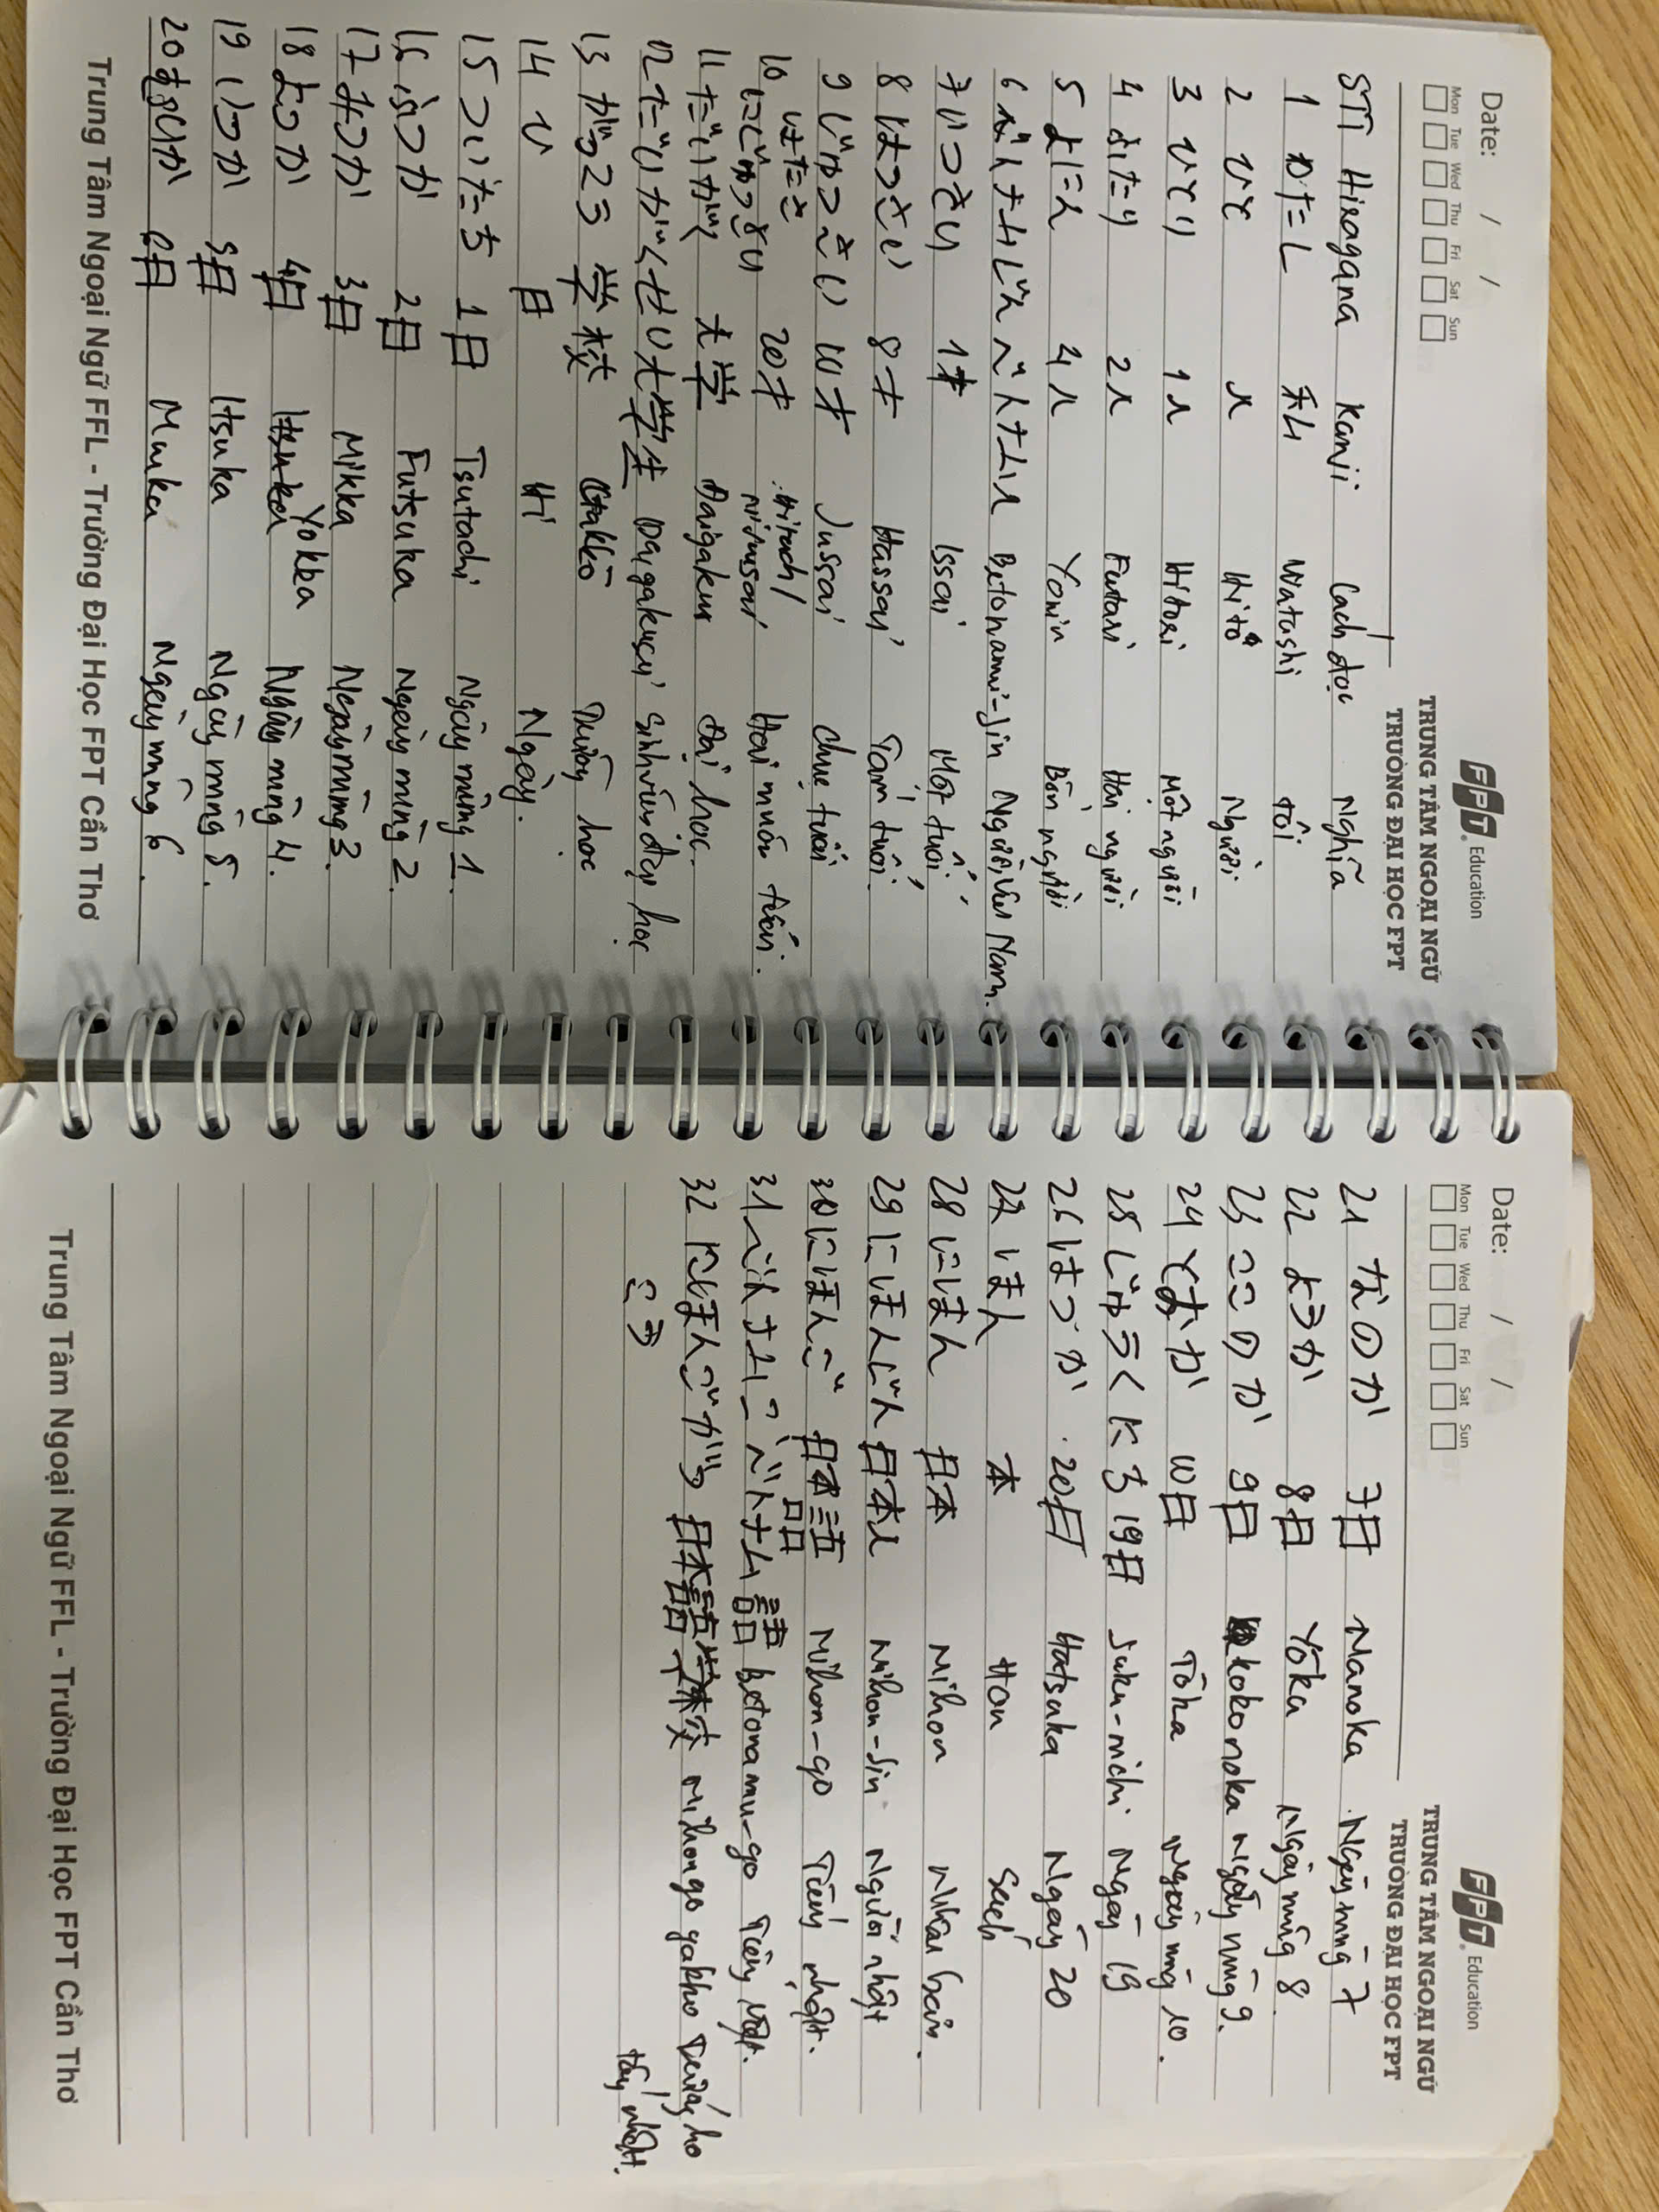 Date: / /
Mon Tue Wed Thu Fri Sat Sun
FPT Education
TRUNG TÂM NGOẠI NGỮ
TRƯỜNG ĐẠI HỌC FPT
STT Hiragana Kanji Cách đọc Nghĩa
1 わたし 私 Watashi tôi
2 ひと 人 Hito Người
3 ひとり 1人 Hitori Một người
4 ふたり 2人 Futari Hai người
5 よにん 4人 Yonin Bốn người
6 べトナムじん ベトナム人 Betonamu-jin Người Việt Nam.
7 いっさい 1才 Issai Một tuổi.
8 はっさい 8才 Hassai Tám tuổi.
9 じゅっさい 10才 Jussai Chục tuổi
はたち Hitachi/
10 にじゅっさい 20才 nijussai Hai mươi tuổi.
11 だいがく 大学 Daigaku Đại học.
12 だいがくせい 大学生 Daigakusei sinh viên đại học
13 がっこう 学校 Gakkō Trường học
14 ひ 日 Hi Ngày.
15 ついたち 1日 Tsutachi Ngày mùng 1.
16 ふつか 2日 Futsuka Ngày mùng 2.
17 みっか 3日 Mikka Ngày mùng 3.
18 よっか 4日 Yokka Ngày mùng 4.
19 いつか 5日 Itsuka Ngày mùng 5.
20 むいか 6日 Muika Ngày mùng 6.
Trung Tâm Ngoại Ngữ FFL - Trường Đại Học FPT Cần Thơ
Date: / /
Mon Tue Wed Thu Fri Sat Sun
FPT Education
TRUNG TÂM NGOẠI NGỮ
TRƯỜNG ĐẠI HỌC FPT
21 なのか 7日 Nanoka Ngày mùng 7
22 ようか 8日 Yōka Ngày mùng 8.
23 ここのか 9日 kokonoka ngày mùng 9.
24 とおか 10日 Tōka Ngày mùng 10.
25 じゅうくにち 19日 Juku-nichi Ngày 19
26 はつか 20日 Hatsuka Ngày 20
27 ほん 本 Hon Sách
28 にほん 日本 Nihon Nhật bản.
29 にほんじん 日本人 Nihon-jin Người nhật
30 にほんご 日本語 Nihon-go Tiếng nhật.
31 べトナムご ベトナム語 betonamu-go Tiếng Việt.
32 にほんごがっ 日本語学校 nihongo gakko Trường học
こう tiếng nhật.
Trung Tâm Ngoại Ngữ FFL - Trường Đại Học FPT Cần Thơ